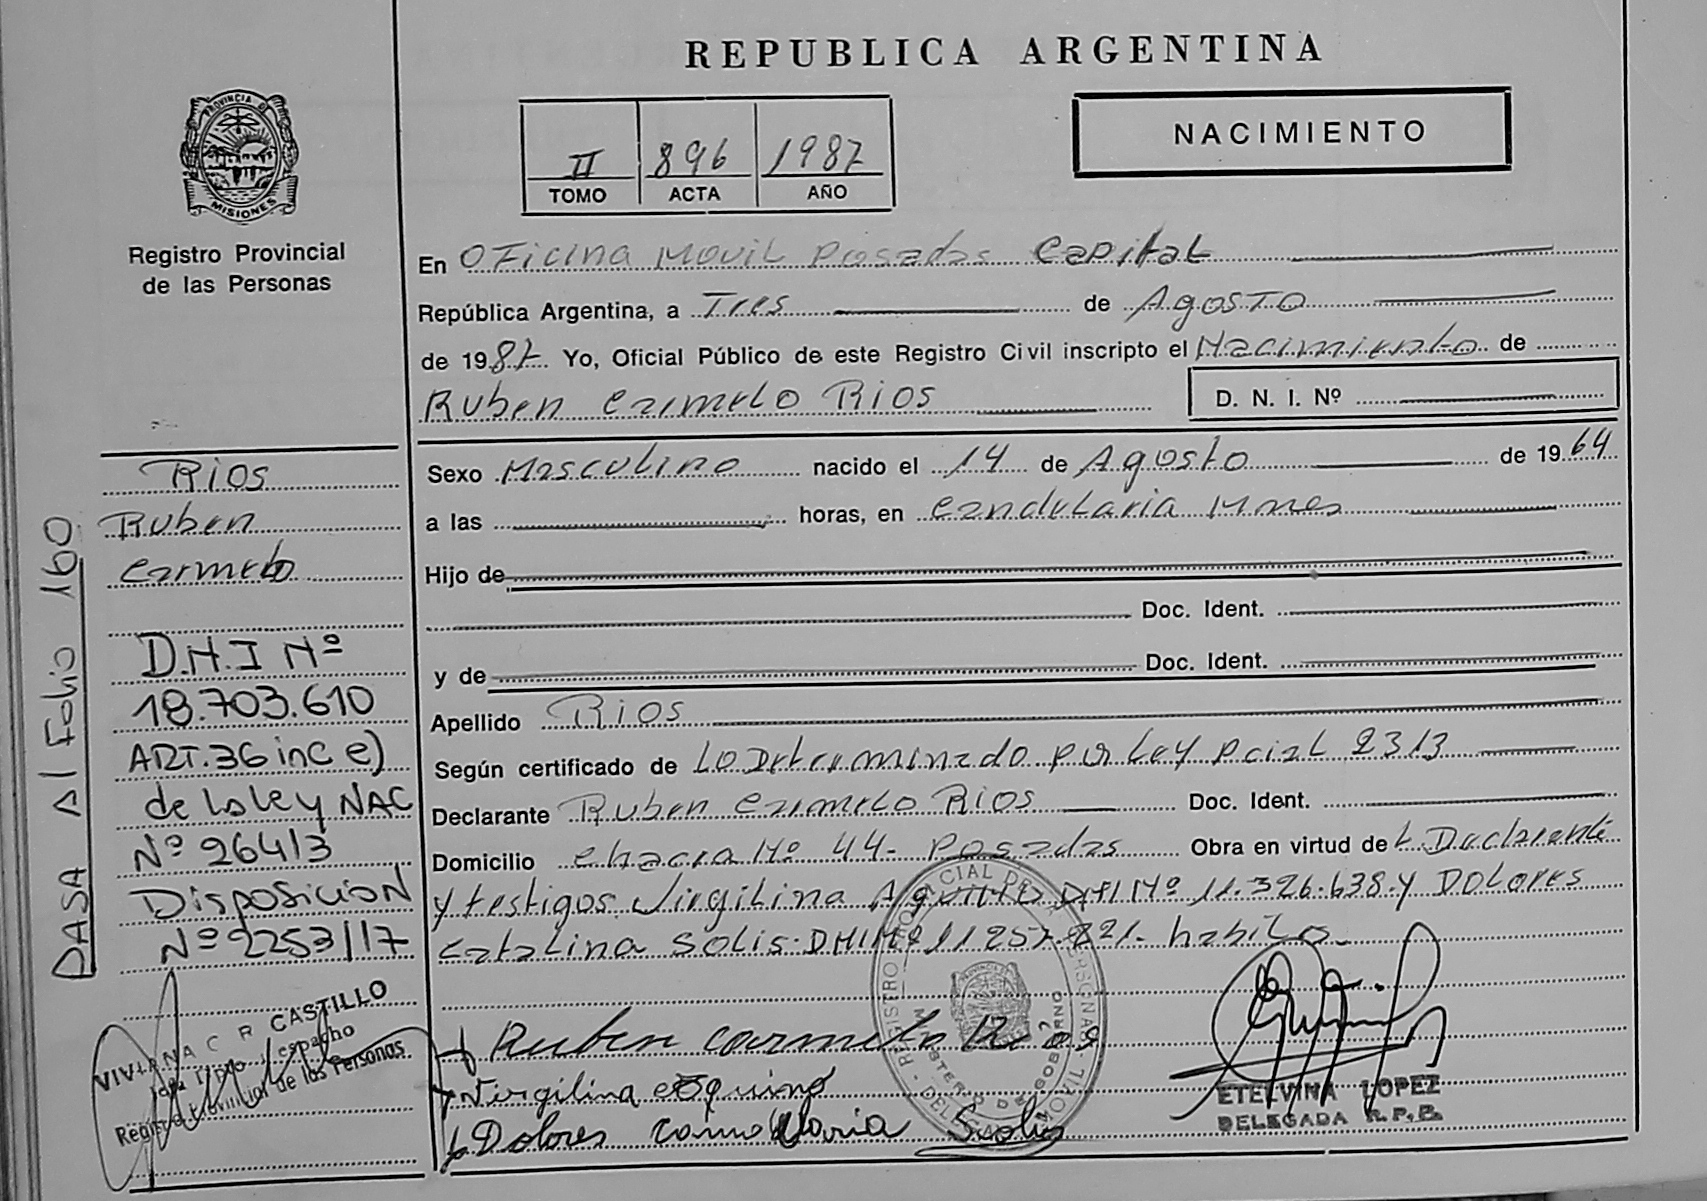 REPUBLICA ARGENTINA
PROVINCIA DE
MISIONES
Registro Provincial
de las Personas
II 896 1987
TOMO ACTA AÑO
NACIMIENTO
En Oficina Movil Posadas Capital
República Argentina, a Tres de Agosto
de 1987. Yo, Oficial Público de este Registro Civil inscripto el Nacimiento de
Ruben Carmelo Rios D. N. I. Nº
Sexo Masculino nacido el 14 de Agosto de 1964
a las horas, en Candelaria Mnes
Hijo de
Doc. Ident.
y de Doc. Ident.
Apellido Rios
Según certificado de Lo Determinado por Ley Pcial 2313
Declarante Ruben Carmelo Rios Doc. Ident.
Domicilio Chacra Nº 44- Posadas Obra en virtud de L. Declarante
y testigos Virgilina DNI Nº 11.326.638.y Dolores
Catalina Solis. DNI Nº habiles.
Ruben Carmelo Rios
Virgilina
Dolores Solis
ETELVINA LOPEZ
DELEGADA R.P.P.
Rios
Ruben
Carmelo
D.N.I Nº
18.703.610
ART.36 inc e)
de la ley NAC
Nº 26413
Disposicion
Nº 2253/17
VIVIANA C R CASTILLO
Registro Provincial de las Personas
PASA Al Folio 160